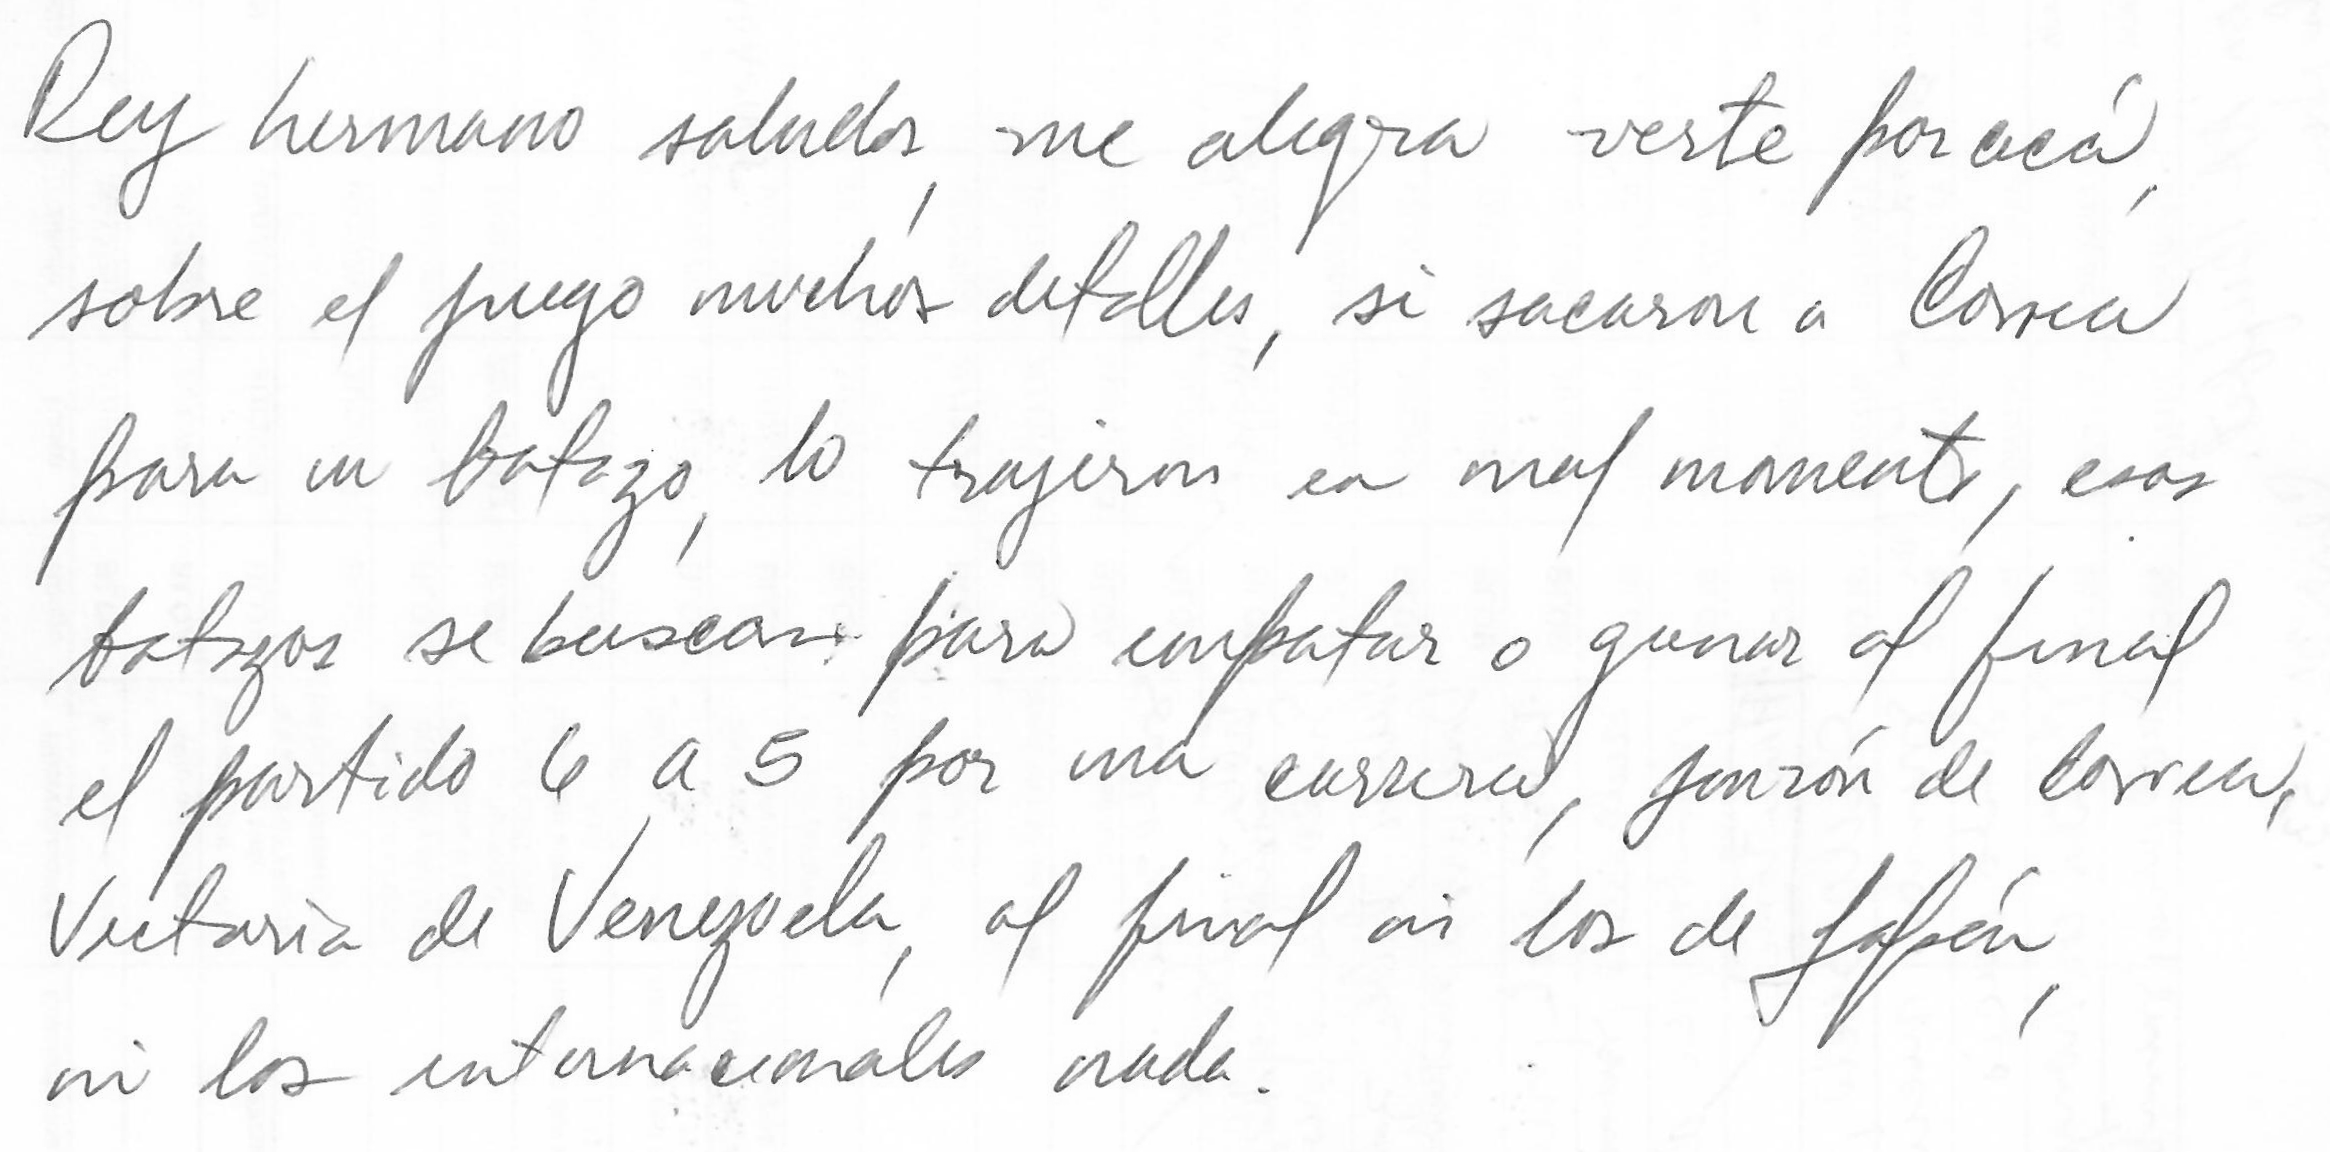 Rey hermano saludos, me alegra verte por acá,
sobre el juego muchos detalles, si sacaron a Correa
para un batazo, lo trajeron en mal momento, esos
batazos se buscan para empatar o ganar al final
el partido 6 a 5 por una carrera, jonrón de Correa,
Victoria de Venezuela, al final ni los de Japón,
ni los internacionales nada.